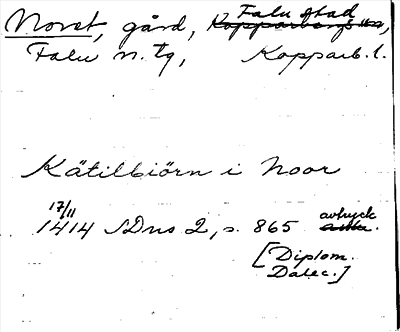 Norst, gård, Falu stad,
Falu n. tg, Kopparb. l.
Kätilbiörn i Noor
17/11 1414 SDns 2, s. 865 avtryck.
[Diplom.
Dalec.]